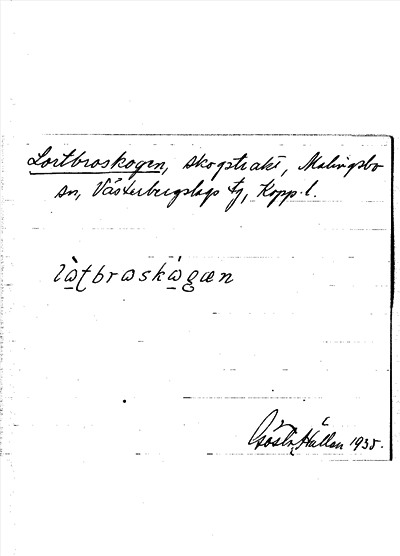 Lortbroskogen, skogstrakt, Malingsbo
sn, Västerbergslags tg, Kopp. l.
lɷ̀ʈbrɷskɷ̀gæn
Gösta Hallén 1935.